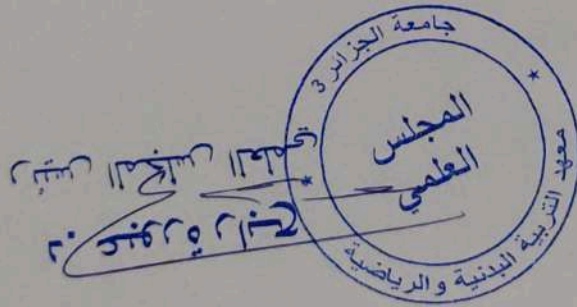 جامعة الجزائر 3
معهد التربية البدنية والرياضية
المجلس
العلمي
عبورة رابح
رئيس المجلس العلمي